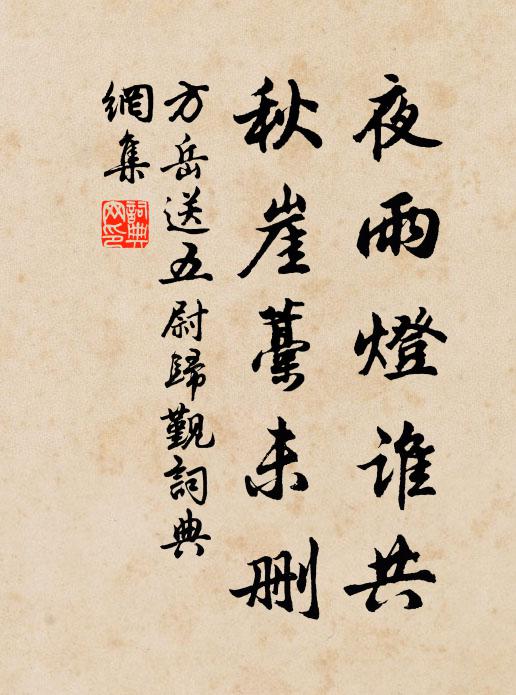 夜雨燈誰共
秋崖藁未刪
方岳送五尉歸覲詞典
網集
詞典
网印